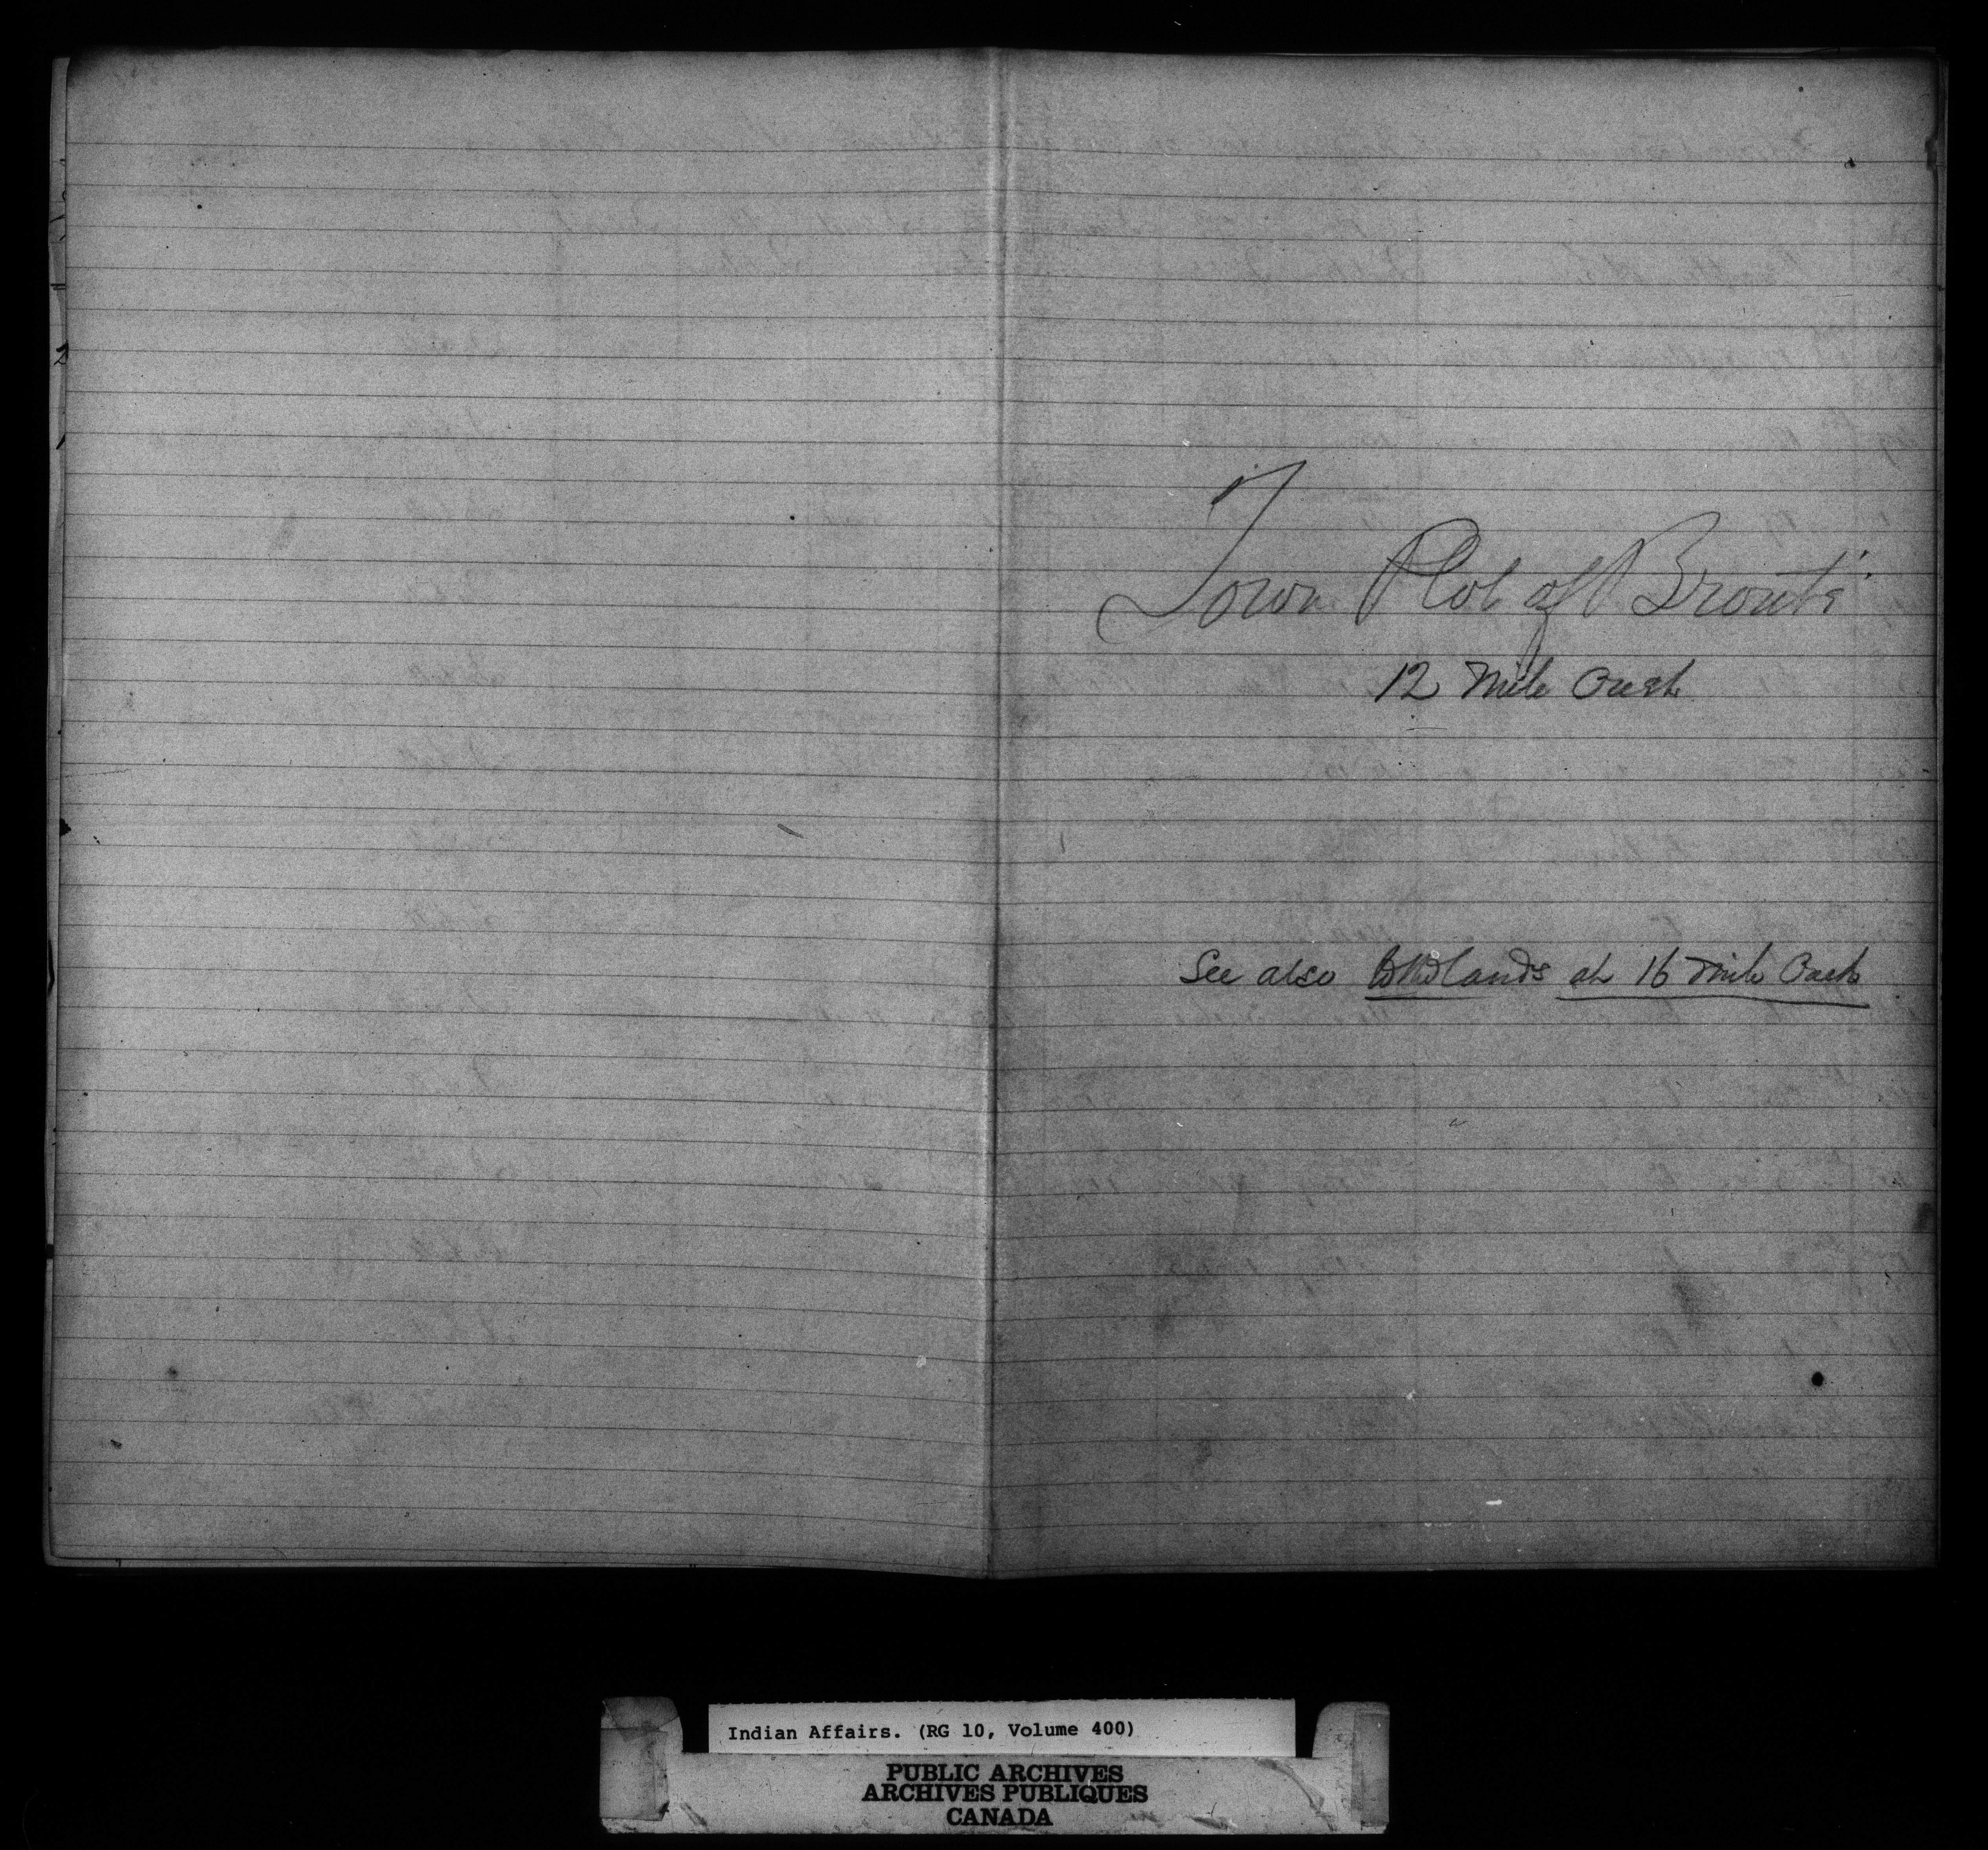 Town Plot of Bronté
12 Mile Creek
See also lands at 16 Mile Creek
Indian Affairs. (RG 10, Volume 400)
PUBLIC ARCHIVES
ARCHIVES PUBLIQUES
CANADA